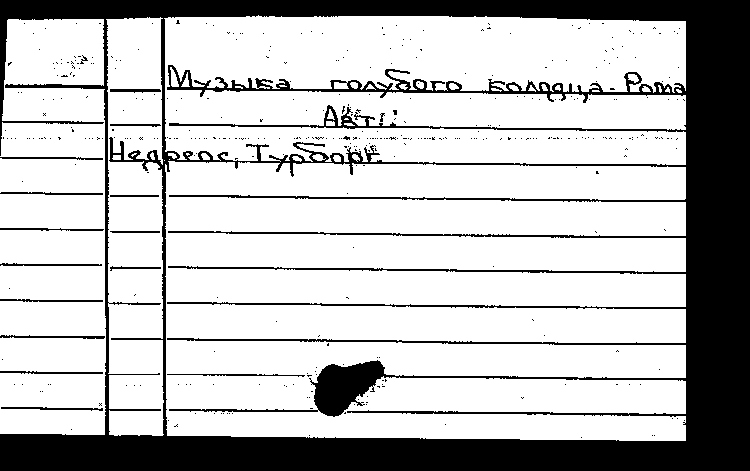 Музыка голубого колодца. Рома
Авт.:
Недреос, Турборг.